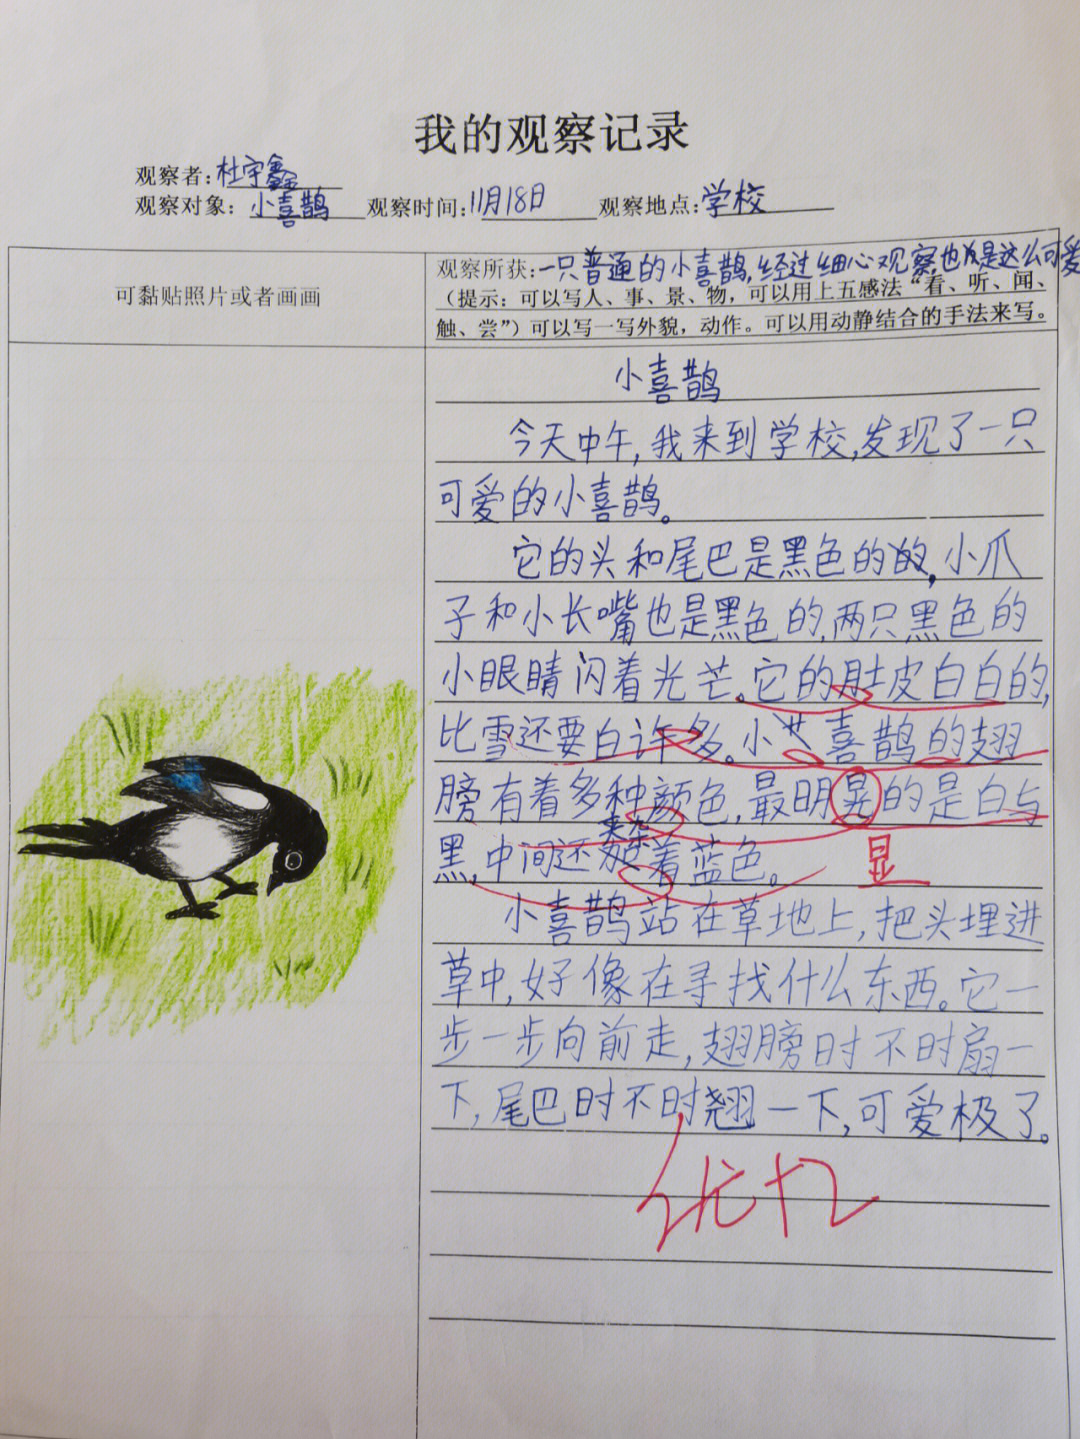 我的观察记录
观察者:杜宇鑫
观察对象:小喜鹊 观察时间:11月18日 观察地点:学校
可黏贴照片或者画画
观察所获:一只普通的小喜鹊,经过细心观察,也是这么可爱
(提示:可以写人、事、景、物,可以用上五感法“看、听、闻、
触、尝”)可以写一写外貌,动作。可以用动静结合的手法来写。
小喜鹊
今天中午,我来到学校,发现了一只
可爱的小喜鹊。
它的头和尾巴是黑色的,小爪
子和小长嘴也是黑色的,两只黑色的
小眼睛闪着光芒。它的肚皮白白的,
比雪还要白许多。小喜鹊的翅
膀有着多种颜色,最明晃的是白与
显
黑,中间还夹杂着蓝色。
小喜鹊站在草地上,把头埋进
草中,好像在寻找什么东西。它一
步一步向前走,翅膀时不时扇一
下,尾巴时不时翘一下,可爱极了。
优